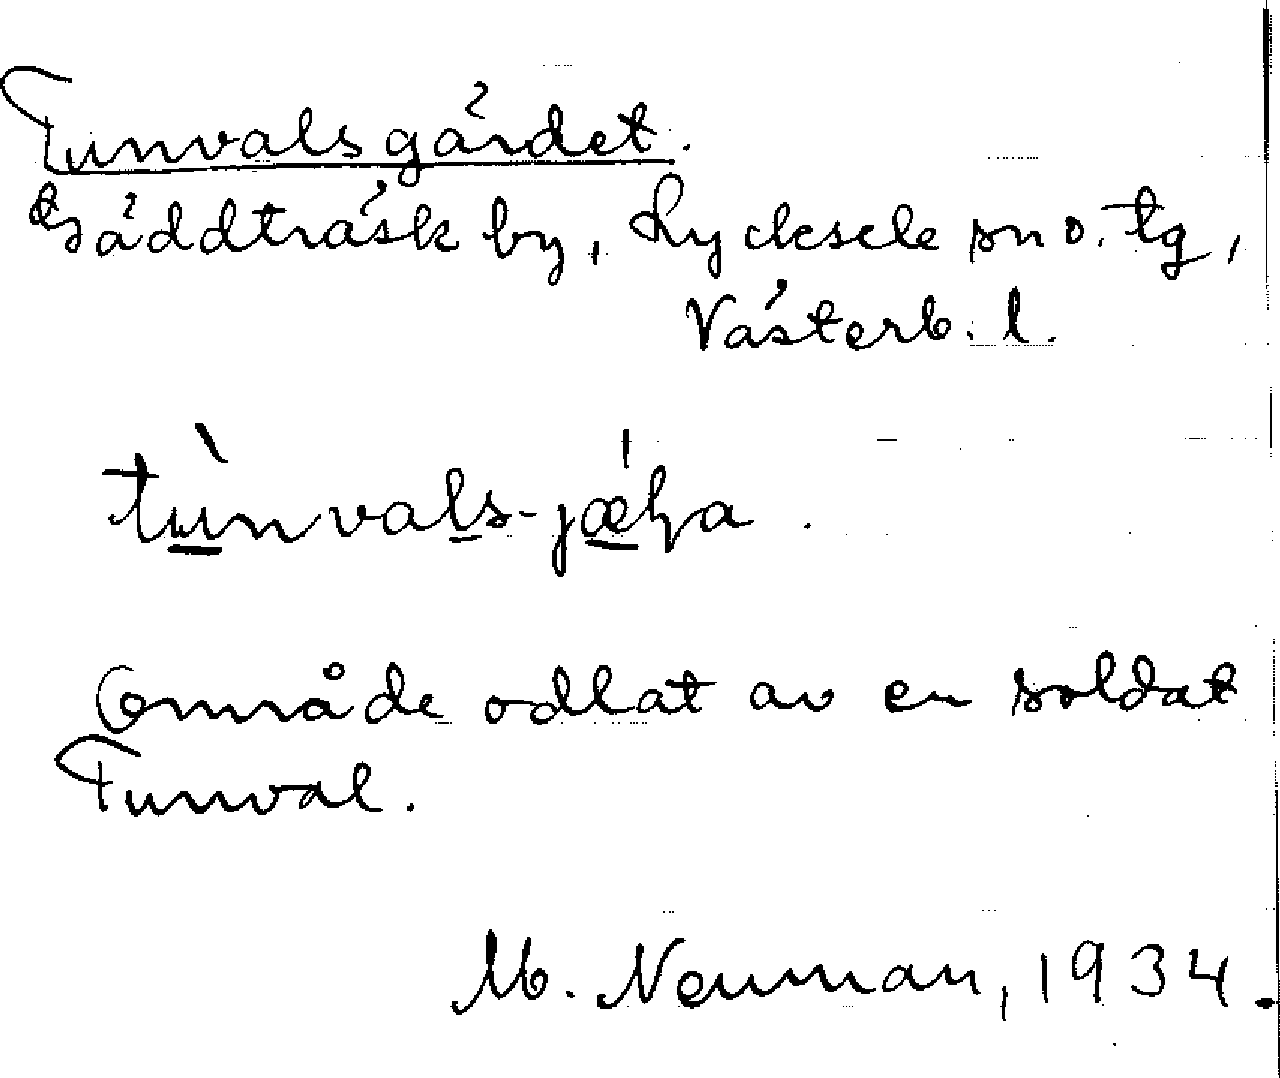 Tunvalsgärdet.
Gäddträsk by, Lycksele sn o. tg,
Västerb. l.
område odlat av en soldat
Tunval.
M. Neuman, 1934.